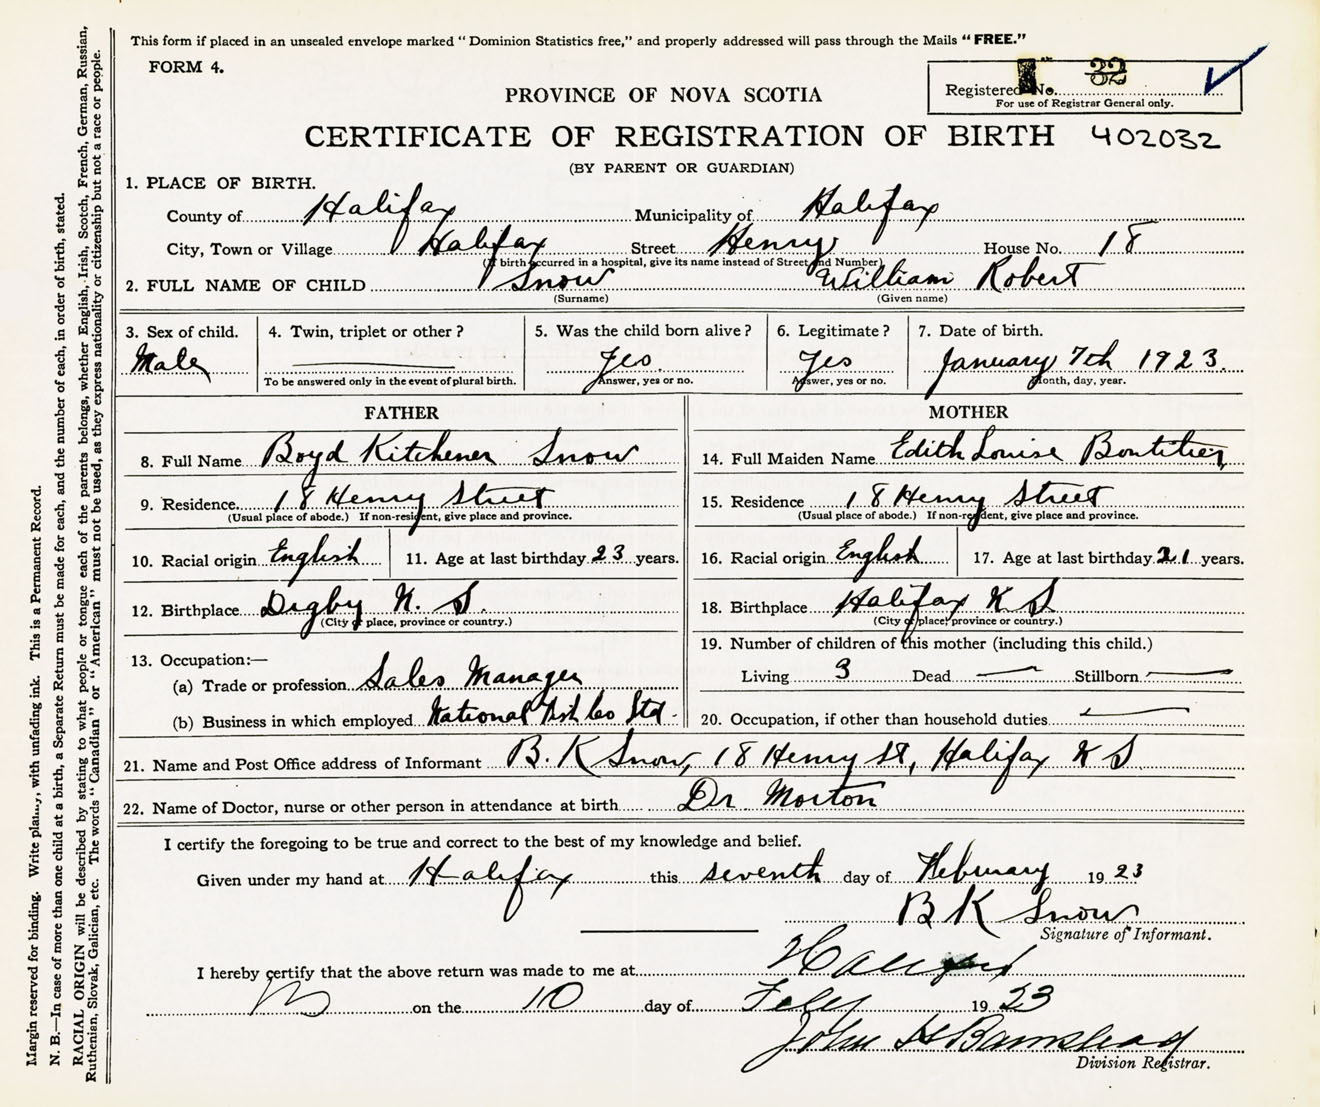 This form if placed in an unsealed envelope marked "Dominion Statistics free," and properly addressed will pass through the Mails "FREE."
FORM 4.
32
Registered No.
For use of Registrar General only.
PROVINCE OF NOVA SCOTIA
CERTIFICATE OF REGISTRATION OF BIRTH 402032
(BY PARENT OR GUARDIAN)
1. PLACE OF BIRTH.
County of Halifax Municipality of Halifax
City, Town or Village Halifax Street Henry House No. 18
(If birth occurred in a hospital, give its name instead of Street and Number)
2. FULL NAME OF CHILD Snow William Robert
(Surname) (Given name)
3. Sex of child. 4. Twin, triplet or other? 5. Was the child born alive? 6. Legitimate? 7. Date of birth.
Male Yes. Yes January 7th 1923.
To be answered only in the event of plural birth. Answer, yes or no. Answer, yes or no. Month, day, year.
FATHER MOTHER
8. Full Name Boyd Kitchener Snow 14. Full Maiden Name Edith Louise Boutilier
9. Residence 18 Henry Street 15. Residence 18 Henry Street
(Usual place of abode.) If non-resident, give place and province. (Usual place of abode.) If non-resident, give place and province.
10. Racial origin English 11. Age at last birthday 23 years. 16. Racial origin English 17. Age at last birthday 21 years.
12. Birthplace Digby N. S. 18. Birthplace Halifax N S
(City or place, province or country.) (City or place, province or country.)
19. Number of children of this mother (including this child.)
13. Occupation:—
(a) Trade or profession Sales Manager Living 3 Dead — Stillborn —
(b) Business in which employed National Fish Co Ltd. 20. Occupation, if other than household duties —
21. Name and Post Office address of Informant B. K Snow, 18 Henry St, Halifax N S
22. Name of Doctor, nurse or other person in attendance at birth Dr Morton
I certify the foregoing to be true and correct to the best of my knowledge and belief.
Given under my hand at Halifax this seventh day of February 1923
B K Snow
Signature of Informant.
I hereby certify that the above return was made to me at Halifax
on the 10 day of Feby 1923
John H Barnstead
Division Registrar.
Margin reserved for binding. Write plainly, with unfading ink. This is a Permanent Record.
N. B.—In case of more than one child at a birth, a Separate Return must be made for each, and the number of each, in order of birth, stated.
RACIAL ORIGIN will be described by stating to what people or tongue each of the parents belongs, whether English, Irish, Scotch, French, German, Russian,
Ruthenian, Slovak, Galician, etc. The words "Canadian" or "American" must not be used, as they express nationality or citizenship but not a race or people.